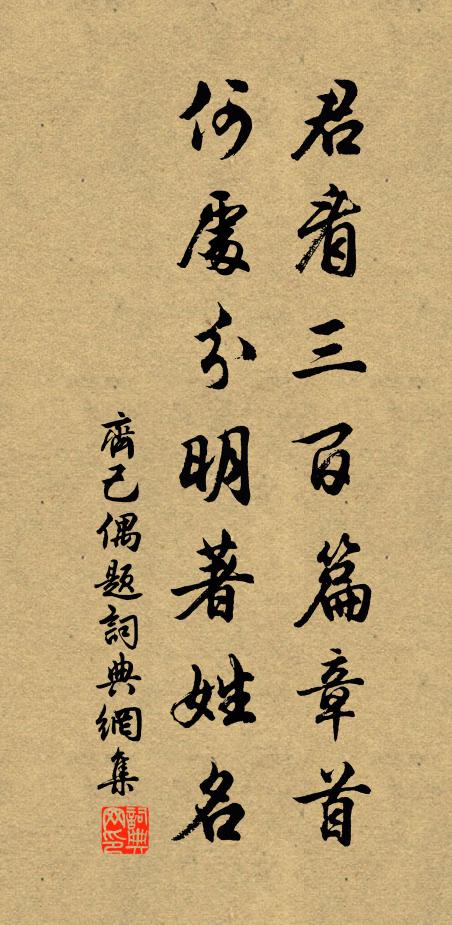 君看三百篇章首
何處分明著姓名
齊己偶題詞典網集
詞典網印